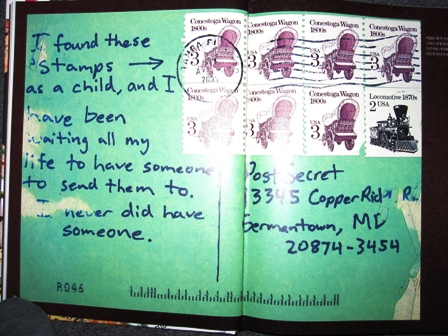 I found these
stamps →
as a child, and I
have been
waiting all my
life to have someone
to send them to.
I never did have
someone.
Conestoga Wagon
1800s
3 USA
Conestoga Wagon
1800s
3 USA
Conestoga Wagon
1800s
3 USA
Conestoga Wagon
1800s
3 USA
Conestoga Wagon
1800s
3 USA
Conestoga Wagon
1800s
3 USA
Conestoga Wagon
1800s
3 USA
Locomotive 1870s
2 USA
PostSecret
13345 Copper Ridge
Germantown, MD
20874-3454